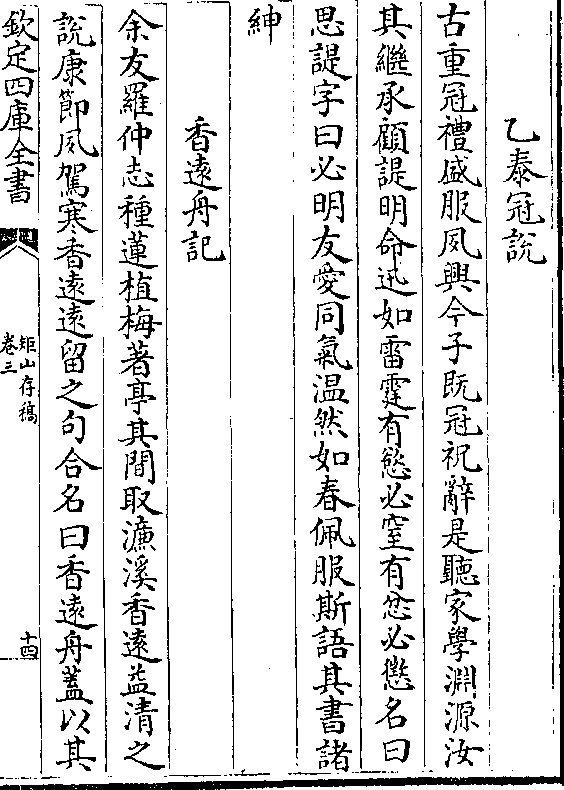 乙泰冠說
古重冠禮盛服夙興今子既冠祝辭是聽家學淵源汝
其繼承顧諟明命迅如雷霆有慾必窒有忿必懲名曰
思諟字曰必明友愛同氣温然如春佩服斯語其書諸
紳
香遠舟記
余友羅仲志種蓮植梅著亭其間取濂溪香遠益清之
說康節夙駕寒香遠遠留之句合名曰香遠舟蓋以其
欽定四庫全書
矩山存稿
卷三
十四